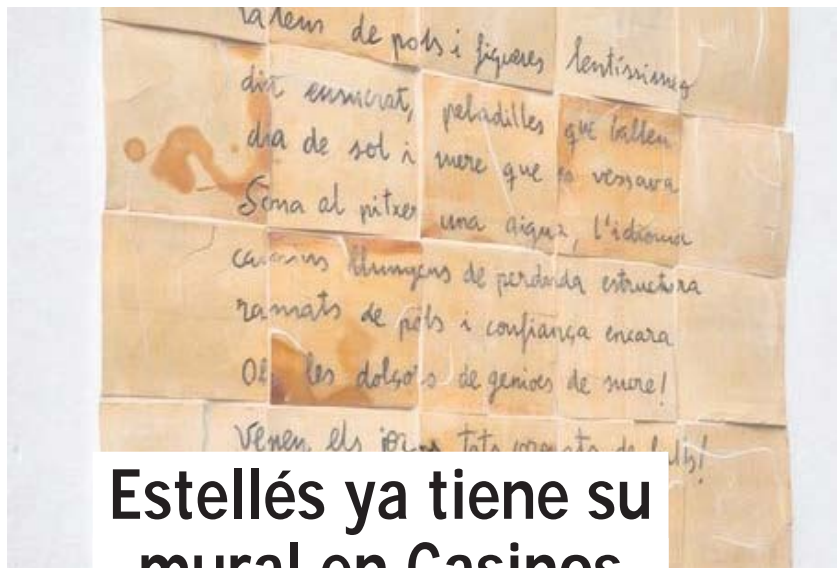 de pols i figueres lentíssimes
dit ensucrat, peladilles que ballen
dia de sol i mere que vessava
Sona al pitxer una aigua, l'idioma
llunyans de perduda estructura
ramats de pols i confiança encara
Oh les dolçors de genives de mere!
Venen els tots de
Estellés ya tiene su
mural en Casinos